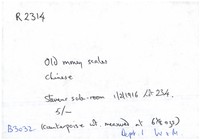 R2314
Old money scales
Chinese
Stevens sale-room 1/2/1916 Lot 234.
5/-
B.3032. (counterpoise wt. measured at
Dept. 1 W & M